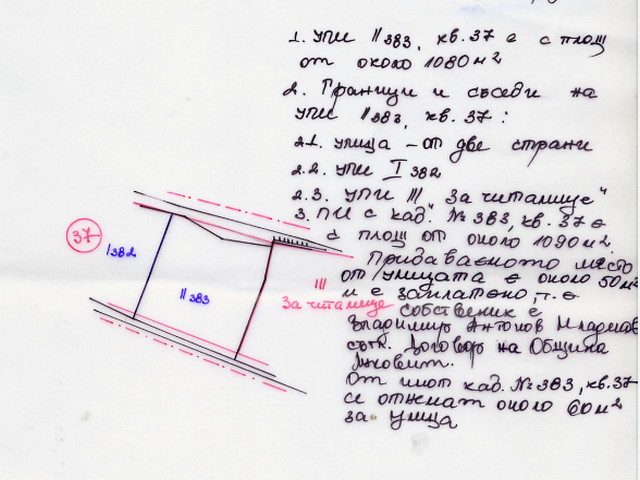 1. УПИ II 383, кв. 37 е с площ
от около 1080 м²
2. Граници и съседи на
УПИ II 383, кв. 37:
2.1. улица – от две страни
2.2. УПИ I 382
2.3. УПИ III "За читалище"
3. ПИ с кад. № 383, кв. 37 е
с площ от около 1090 м².
Придаваемото място
от улицата е около 50 м²
и е заплатено, т.е
собственик е
Владимир Антонов Младенов
съгл. Договор на Община
Луковит.
От имот кад. № 383, кв. 37
се отнемат около 60 м²
за улица
37
I 382
II 383
III
За читалище